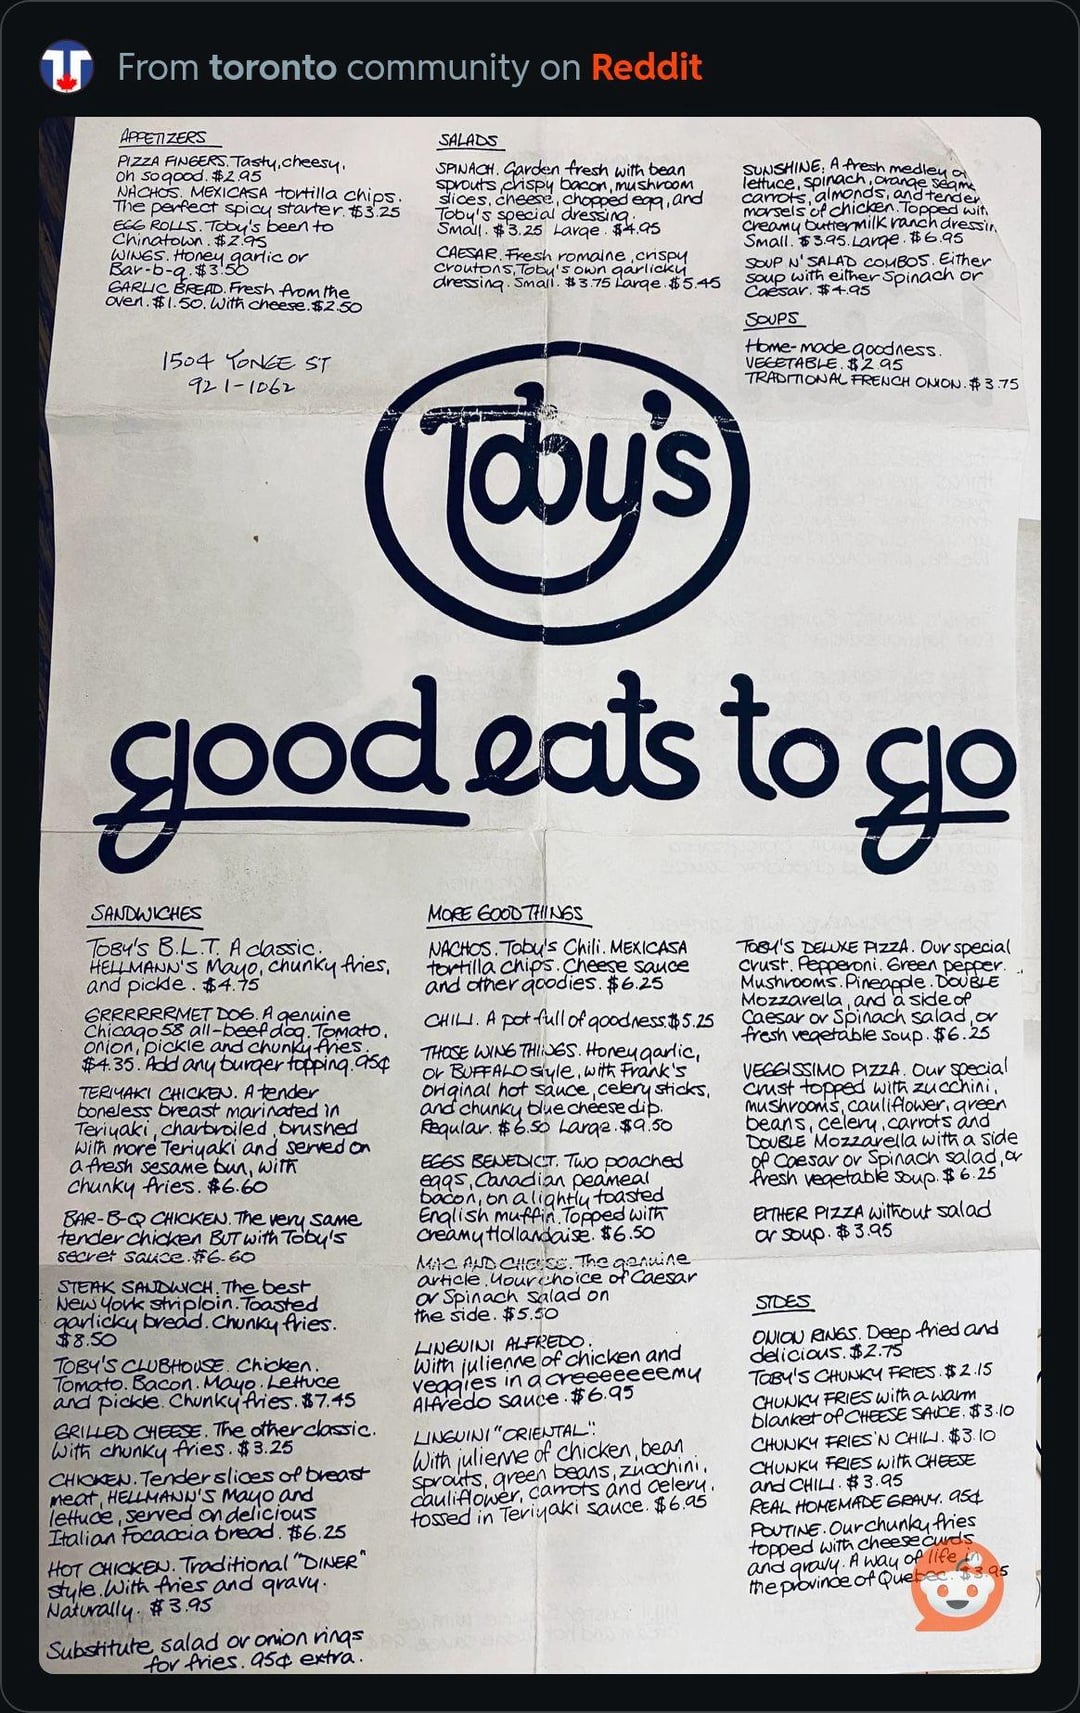 From toronto community on Reddit
APPETIZERS
PIZZA FINGERS. Tasty, cheesy,
oh so good. $2.95
NACHOS. MEXICASA tortilla chips.
The perfect spicy starter. $3.25
EGG ROLLS. Toby's been to
Chinatown. $2.95
WINGS. Honey garlic or
Bar-b-q. $3.50
GARLIC BREAD. Fresh from the
oven. $1.50. With cheese. $2.50
1504 YONGE ST
921-1062
SALADS
SPINACH. Garden fresh with bean
sprouts, crispy bacon, mushroom
slices, cheese, chopped egg, and
Toby's special dressing.
Small. $3.25 Large. $4.95
CAESAR. Fresh romaine, crispy
croutons, Toby's own garlicky
dressing. Small. $3.75 Large. $5.45
SUNSHINE. A fresh medley
lettuce, spinach, orange
carrots, almonds, and tender
morsels of chicken. Topped
creamy buttermilk ranch
Small. $3.95. Large. $6.95
SOUP N' SALAD COMBOS. Either
soup with either Spinach or
Caesar. $4.95
SOUPS
Home-made goodness.
VEGETABLE. $2.95
TRADITIONAL FRENCH ONION. $3.75
Toby's
good eats to go
SANDWICHES
TOBY'S B.L.T. A classic.
HELLMANN'S Mayo, chunky fries,
and pickle. $4.75
GRRRRRRMET DOG. A genuine
Chicago 58 all-beef dog. Tomato,
onion, pickle and chunky fries.
$4.35. Add any burger topping. 95¢
TERIYAKI CHICKEN. A tender
boneless breast marinated in
Teriyaki, charbroiled, brushed
with more Teriyaki and served on
a fresh sesame bun, with
chunky fries. $6.60
BAR-B-Q CHICKEN. The very same
tender chicken BUT with Toby's
secret sauce. $6.60
STEAK SANDWICH. The best
New York striploin. Toasted
garlicky bread. Chunky fries.
$8.50
TOBY'S CLUBHOUSE. Chicken.
Tomato. Bacon. Mayo. Lettuce
and pickle. Chunky fries. $7.45
GRILLED CHEESE. The other classic.
With chunky fries. $3.25
CHICKEN. Tender slices of breast
meat, HELLMANN'S Mayo and
lettuce, served on delicious
Italian Focaccia bread. $6.25
HOT CHICKEN. Traditional "DINER"
style. With fries and gravy.
Naturally. $3.95
Substitute salad or onion rings
for fries. 95¢ extra.
MORE GOOD THINGS
NACHOS. Toby's Chili. MEXICASA
tortilla chips. Cheese sauce
and other goodies. $6.25
CHILI. A pot-full of goodness. $5.25
THOSE WING THINGS. Honey garlic,
or BUFFALO style, with Frank's
original hot sauce, celery sticks,
and chunky blue cheese dip.
Regular. $6.50 Large. $9.50
EGGS BENEDICT. Two poached
eggs, Canadian peameal
bacon, on a lightly toasted
English muffin. Topped with
creamy Hollandaise. $6.50
MAC AND CHEESE. The genuine
article. Your choice of Caesar
or Spinach salad on
the side. $5.50
LINGUINI ALFREDO.
With julienne of chicken and
veggies in a creeeeeeemy
Alfredo sauce. $6.95
LINGUINI "ORIENTAL".
With julienne of chicken, bean
sprouts, green beans, zucchini,
cauliflower, carrots and celery,
tossed in Teriyaki sauce. $6.95
TOBY'S DELUXE PIZZA. Our special
crust. Pepperoni. Green pepper.
Mushrooms. Pineapple. DOUBLE
Mozzarella, and a side of
Caesar or Spinach salad, or
fresh vegetable soup. $6.25
VEGGISSIMO PIZZA. Our special
crust topped with zucchini,
mushrooms, cauliflower, green
beans, celery, carrots and
DOUBLE Mozzarella with a side
of Caesar or Spinach salad, or
fresh vegetable soup. $6.25
EITHER PIZZA without salad
or soup. $3.95
SIDES
ONION RINGS. Deep fried and
delicious. $2.75
TOBY'S CHUNKY FRIES. $2.15
CHUNKY FRIES with a warm
blanket of CHEESE SAUCE. $3.10
CHUNKY FRIES 'N CHILI. $3.10
CHUNKY FRIES with CHEESE
and CHILI. $3.95
REAL HOMEMADE GRAVY. 95¢
POUTINE. Our chunky fries
topped with cheese curds
and gravy. A way of life in
the province of Quebec. $3.95